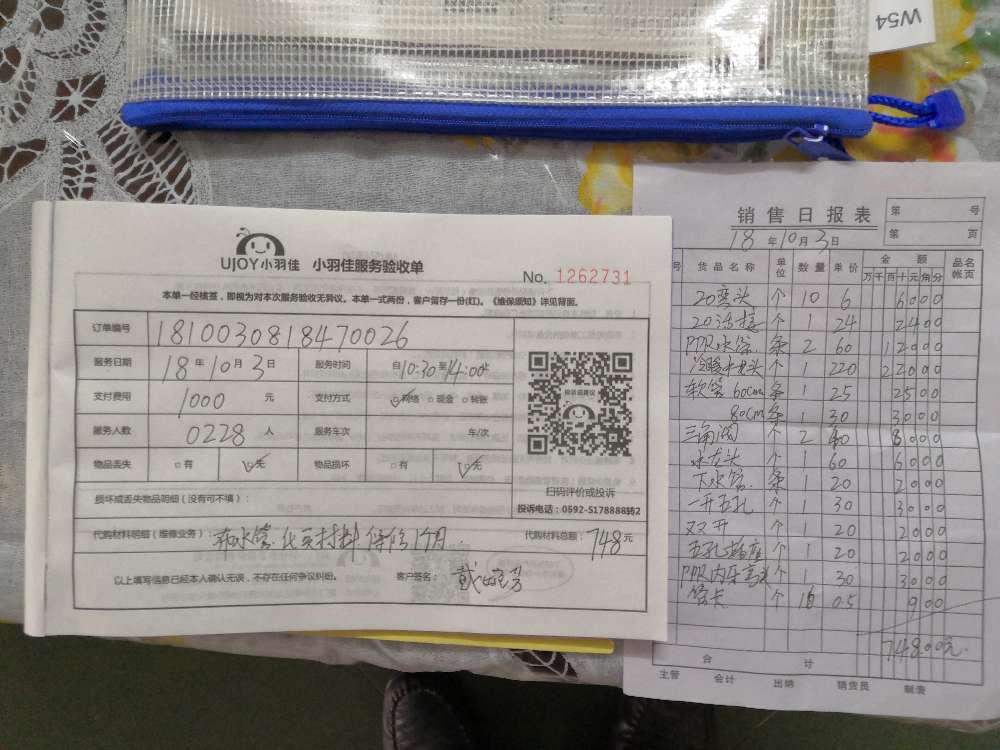 W54
UJOY小羽佳 小羽佳服务验收单
No. 1262731
本单一经核签,即视为对本次服务验收无异议。本单一式两份,客户留存一份(红)。《维保须知》详见背面。
订单编号 1810030818470026
服务日期 18年10月3日 服务时间 自10:30至14:00
支付费用 1000元 支付方式 ☑网络 □现金 □转账
服务人数 0228人 服务车次 车/次
物品丢失 □有 ☑无 物品损坏 □有 ☑无
扫码评价或投诉
损坏或丢失物品明细(没有可不填):
投诉电话:0592-5178888转2
代购材料明细(维修业务): 保修1个月 代购材料总额: 748元
以上填写信息已经本人确认无误,不存在任何争议纠纷。 客户签名:
销售日报表
第 号
第 页
18年10月3日
号 货品名称 单位 数量 单价 金额 品名帐页
万千百十元角分
20弯头 个 10 6 6000
20活接 个 1 24 2400
PPR水管 条 2 60 12000
冷暖水龙头 个 1 220 22000
软管60cm 条 1 25 2500
80cm 条 1 30 3000
三角阀 个 2 40 8000
水龙头 个 1 60 6000
下水管 条 1 20 2000
一开五孔 个 1 30 3000
双开 个 1 20 2000
五孔插座 个 1 20 2000
PPR内牙弯头 个 1 30 3000
管卡 个 18 0.5 900
74800元
合计
主管 会计 出纳 销售员 制表